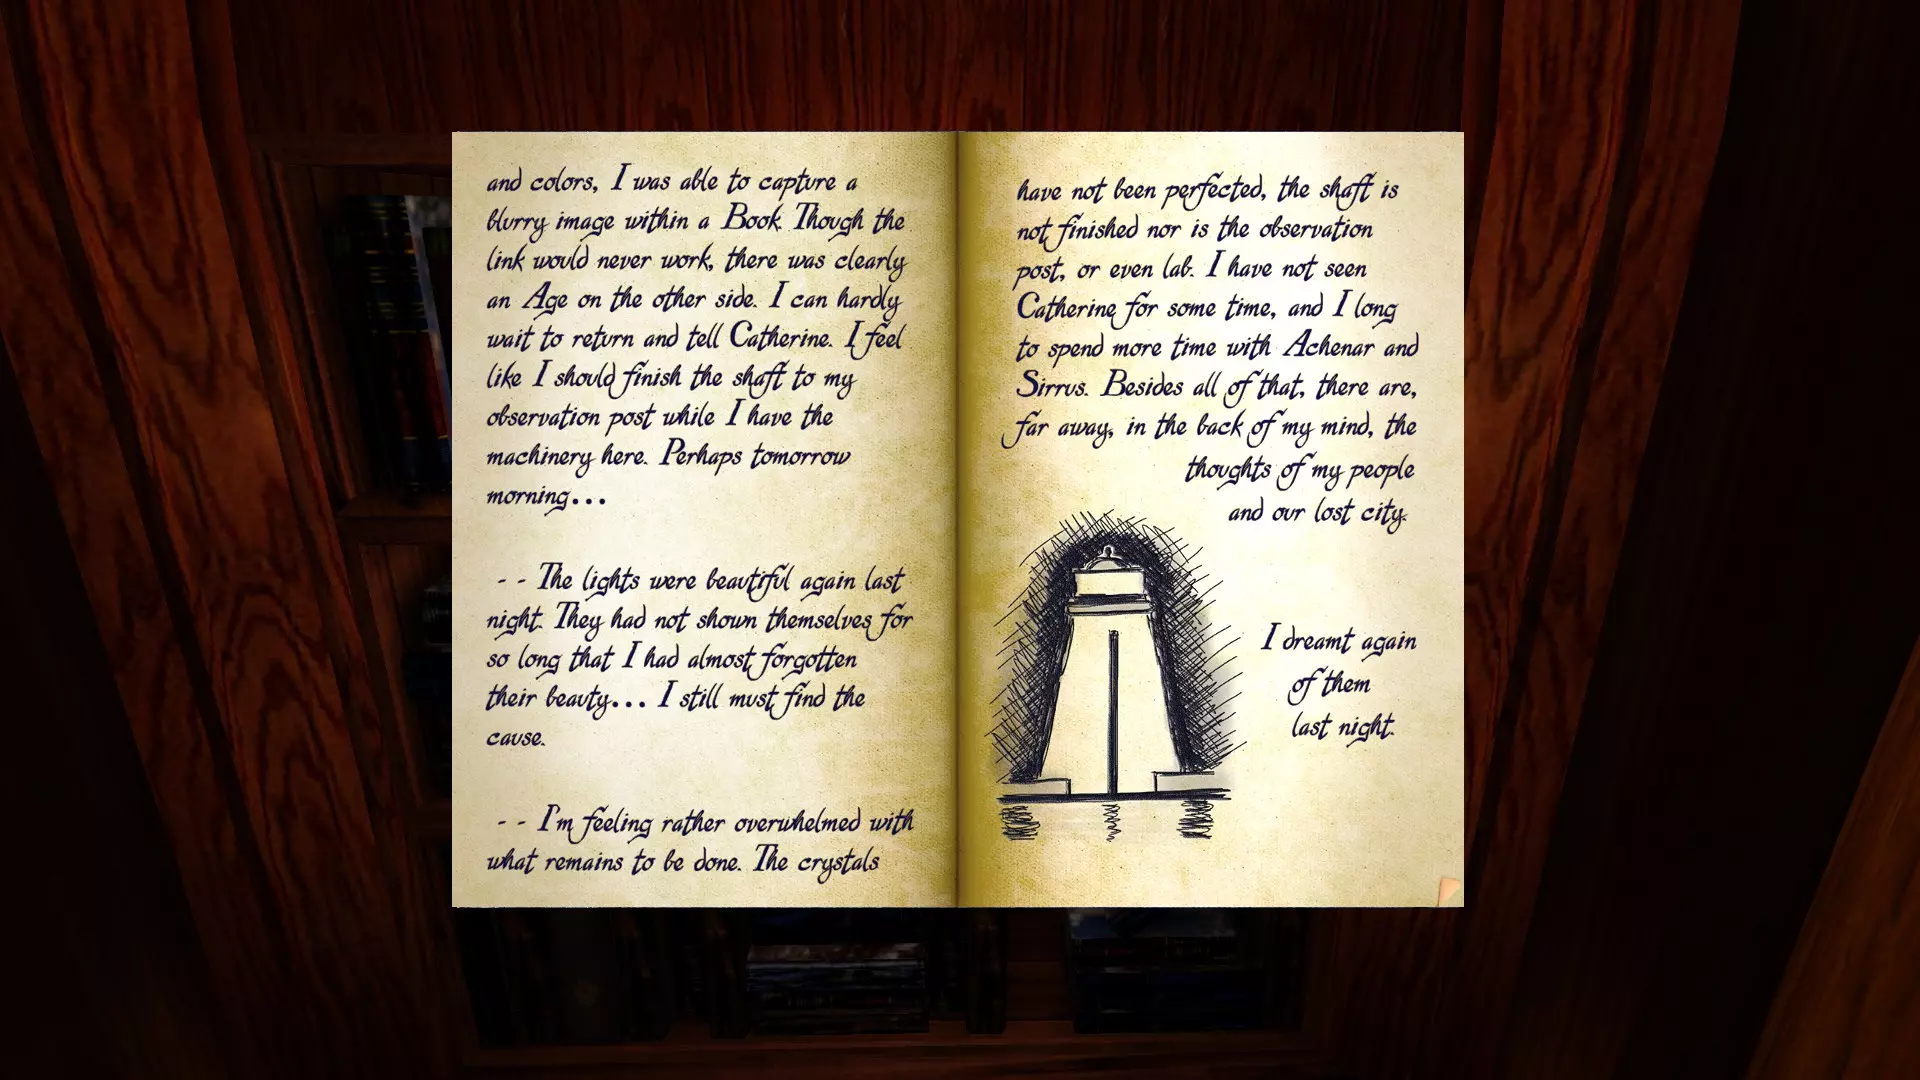 and colors, I was able to capture a
blurry image within a Book. Though the
link would never work, there was clearly
an Age on the other side. I can hardly
wait to return and tell Catherine. I feel
like I should finish the shaft to my
observation post while I have the
machinery here. Perhaps tomorrow
morning...
- - The lights were beautiful again last
night. They had not shown themselves for
so long that I had almost forgotten
their beauty... I still must find the
cause.
- - I'm feeling rather overwhelmed with
what remains to be done. The crystals
have not been perfected, the shaft is
not finished nor is the observation
post, or even lab. I have not seen
Catherine for some time, and I long
to spend more time with Achenar and
Sirrus. Besides all of that, there are,
far away, in the back of my mind, the
thoughts of my people
and our lost city.
I dreamt again
of them
last night.